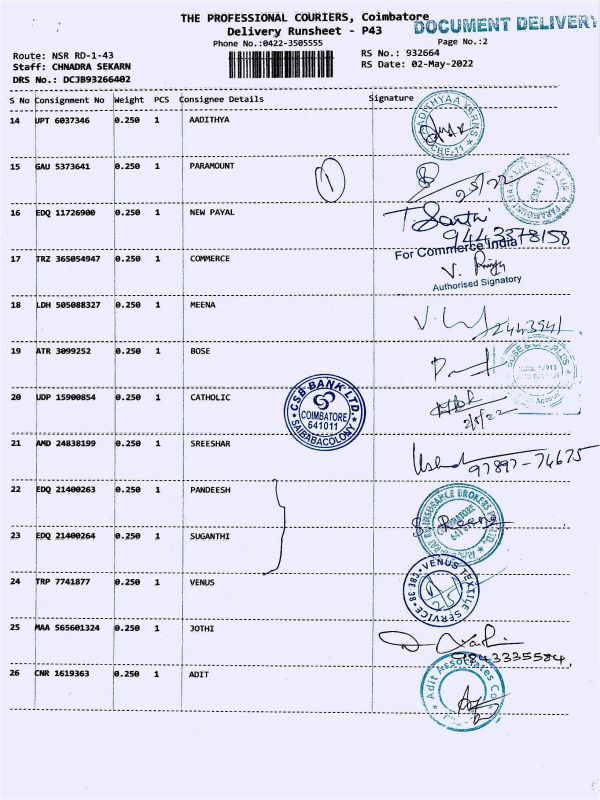 THE PROFESSIONAL COURIERS, Coimbatore
DOCUMENT DELIVERY
Delivery Runsheet - P43
Phone No.:0422-3505555
Page No.:2
Route: NSR RD-1-43
RS No.: 932664
Staff: CHNADRA SEKARN
RS Date: 02-May-2022
DRS No.: DCJB93266402
S No Consignment No Weight PCS Consignee Details Signature
14 UPT 6037346 0.250 1 AADITHYA
AADITHYAA YARNS
CBE-11
15 GAU 5373641 0.250 1 PARAMOUNT
1
16 EDQ 11726900 0.250 1 NEW PAYAL
9443378158
For Commerce India
17 TRZ 365054947 0.250 1 COMMERCE
Authorised Signatory
18 LDH 505088327 0.250 1 MEENA
2443941
19 ATR 3099252 0.250 1 BOSE
20 UDP 15900854 0.250 1 CATHOLIC
CSB BANK LTD.
COIMBATORE
641011
SAIBABACOLONY
2/5/22
21 AMD 24838199 0.250 1 SREESHAR
97897-74675
22 EDQ 21400263 0.250 1 PANDEESH
INSURANCE BROKERS
COIMBATORE
23 EDQ 21400264 0.250 1 SUGANTHI
24 TRP 7741877 0.250 1 VENUS
VENUS TEXTILE SERVICE
25 MAA 565601324 0.250 1 JOTHI
9843335584
26 CNR 1619363 0.250 1 ADIT
Adit Associates